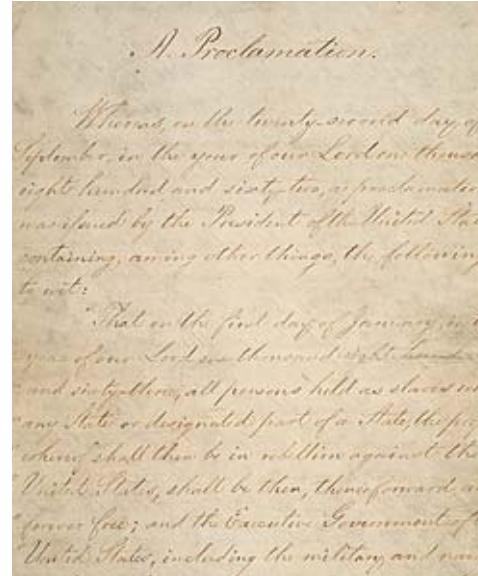 A Proclamation.
Whereas, on the twenty-second day of
September, in the year of our Lord one thousa
eight hundred and sixty-two, a proclamation
was issued by the President of the United Stat
containing, among other things, the following
to wit:
"That on the first day of January, in t
year of our Lord one thousand eight hundre
and sixty-three, all persons held as slaves wi
any State or designated part of a State, the peo
whereof shall then be in rebellion against the
United States, shall be then, thenceforward, a
forever free; and the Executive Government of t
United States, including the military and nav